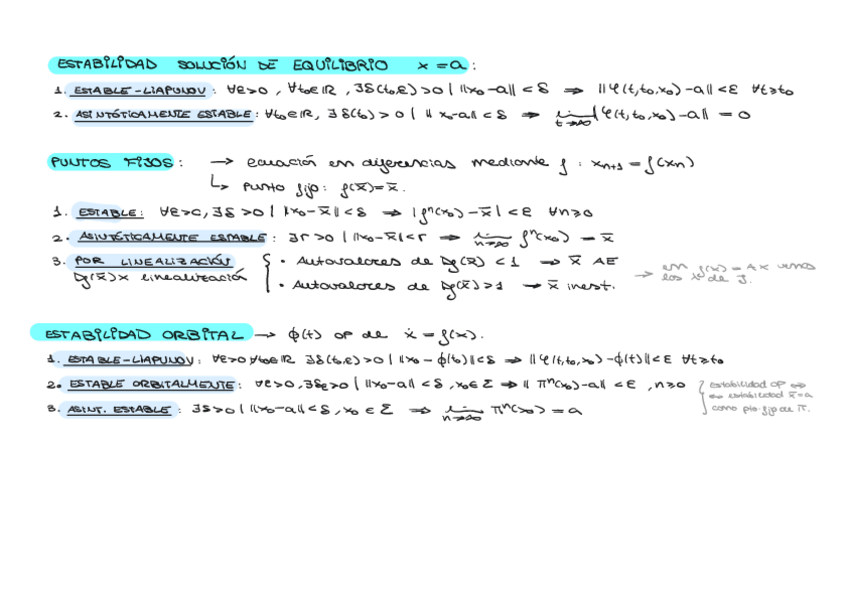 ESTABILIDAD SOLUCIÓN DE EQUILIBRIO x = a :
1. ESTABLE-LIAPUNOV : ∀ε>0 , ∀t₀∈ℝ , ∃δ(t₀,ε)>0 | ‖x₀-a‖ < δ ⇒ ‖φ(t,t₀,x₀)-a‖<ε ∀t≥t₀
2. ASINTÓTICAMENTE ESTABLE : ∀t₀∈ℝ, ∃ δ(t₀) > 0 | ‖x₀-a‖ < δ ⇒ lim t→∞ ‖φ(t,t₀,x₀)-a‖ = 0
PUNTOS FIJOS : → ecuación en diferencias mediante f : xₙ₊₁ = f(xₙ)
↳ Punto fijo: f(x̄)=x̄.
1. ESTABLE: ∀ε>0, ∃δ>0 | |x₀-x̄|<δ ⇒ |fⁿ(x₀)-x̄|<ε ∀n≥0
2. ASINTÓTICAMENTE ESTABLE : ∃r>0 | |x₀-x̄|<r ⇒ lim n→∞ fⁿ(x₀) = x̄
3. POR LINEALIZACIÓN { • Autovalores de Df(x̄) < 1 ⇒ x̄ AE
Df(x̄)x linealización • Autovalores de Df(x̄)>1 → x̄ inest.
→ en f(x) = Ax vemos
los λ de J.
ESTABILIDAD ORBITAL → ϕ(t) op de ẋ = f(x).
1. ESTABLE-LIAPUNOV : ∀ε>0 ∀t₀∈ℝ ∃δ(t₀,ε)>0 | ‖x₀-ϕ(t₀)‖<δ ⇒ ‖φ(t,t₀,x₀)-ϕ(t)‖<ε ∀t≥t₀
2. ESTABLE ORBITALMENTE : ∀ε>0, ∃δε>0 | ‖x₀-a‖<δ, x₀∈Σ ⇒ ‖πⁿ(x₀)-a‖<ε , n≥0
{ estabilidad op ⇔
⇔ estabilidad x̄=a
como pto. fijo de π.
3. ASINT. ESTABLE : ∃δ>0 | ‖x₀-a‖<δ, x₀∈Σ ⇒ lim n→∞ πⁿ(x₀) = a